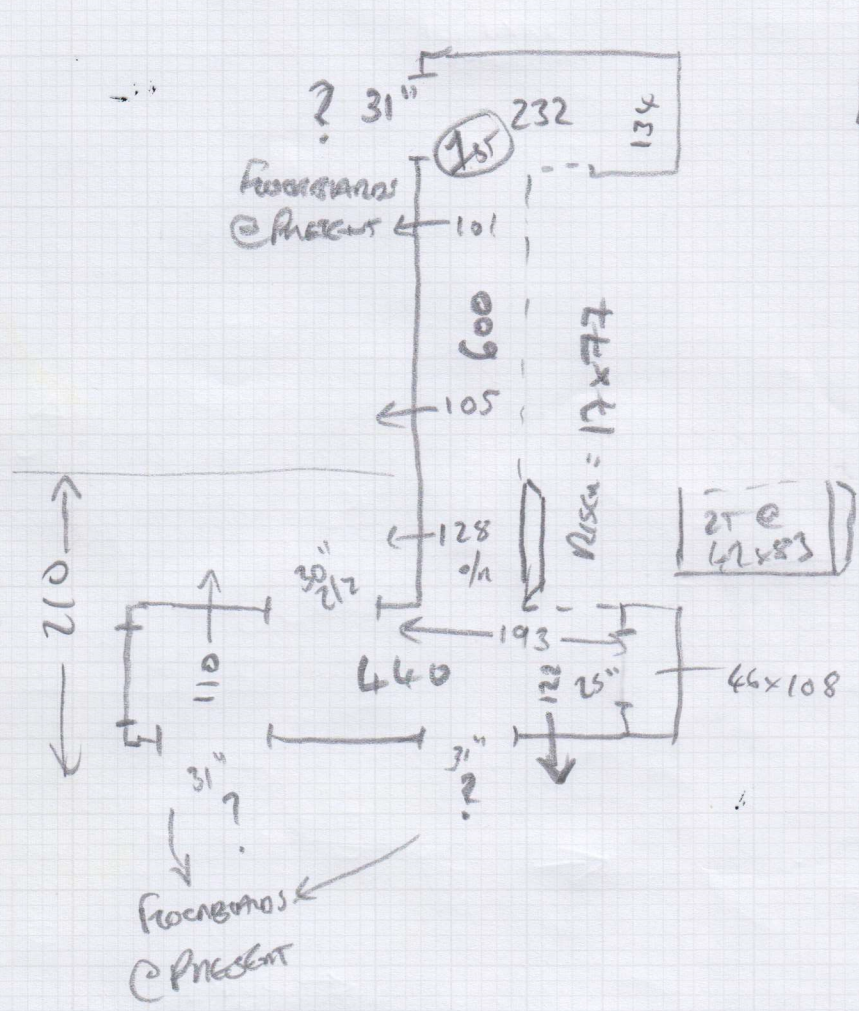 ? 31"
232
134
1st
FLOORBOARDS
@ PRESENT
101
600
105
RISER = 17x77
128
o/n
2T @
42x83
210
30"
212
193
110
440
122
25"
46x108
31"
?
31"
?
FLOORBOARDS
@ PRESENT